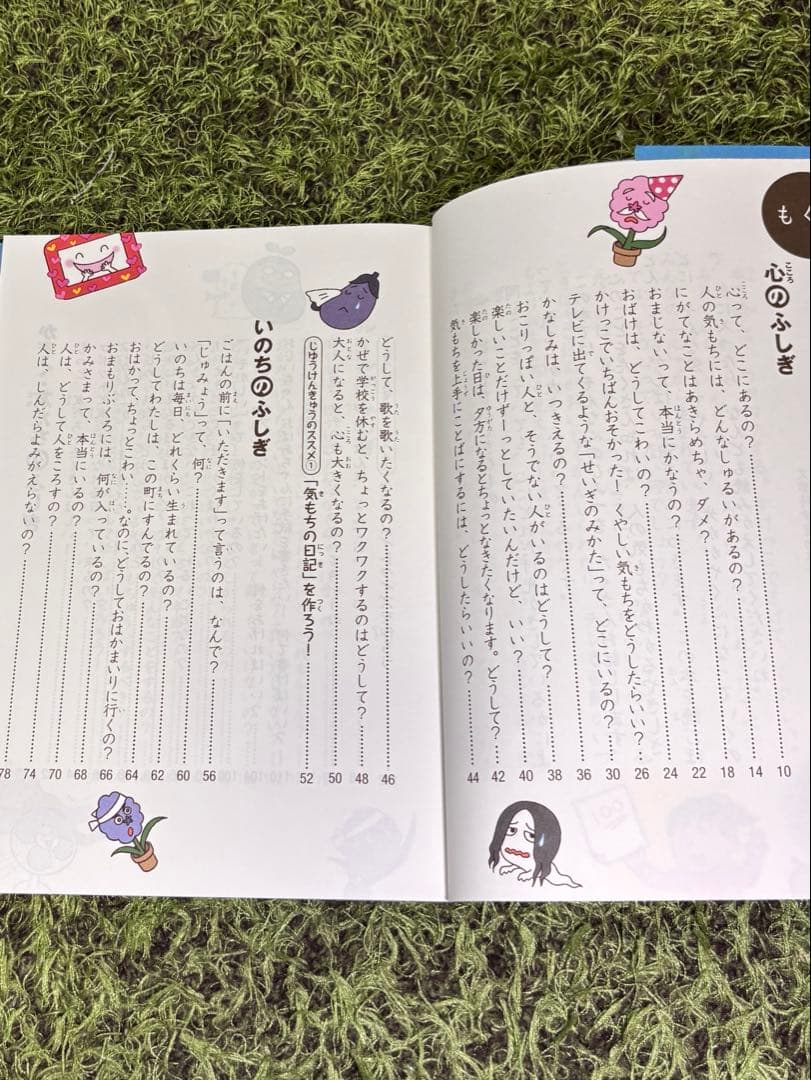 もく
心のふしぎ
心って、どこにあるの? 10
人の気もちには、どんなしゅるいがあるの? 14
にがてなことはあきらめちゃ、ダメ? 18
おまじないって、本当にかなうの? 22
おばけは、どうしてこわいの? 24
かけっこでいちばんおそかった! くやしい気もちをどうしたらいい? 26
テレビに出てくるような「せいぎのみかた」って、どこにいるの? 30
かなしみは、いつきえるの? 36
おこりっぽい人と、そうでない人がいるのはどうして? 38
楽しいことだけずーっとしていたいんだけど、いい? 40
楽しかった日は、夕方になるとちょっとなきたくなります。どうして? 42
気もちを上手にことばにするには、どうしたらいいの? 44
どうして、歌を歌いたくなるの? 46
かぜで学校を休むと、ちょっとワクワクするのはどうして? 48
大人になると、心も大きくなるの? 50
じゆうけんきゅうのススメ① 「気もちの日記」を作ろう! 52
いのちのふしぎ
ごはんの前に「いただきます」って言うのは、なんで? 56
「じゅみょう」って、何? 60
いのちは毎日、どれくらい生まれているの? 62
どうしてわたしは、この町にすんでるの? 64
おはかって、ちょっとこわい……。なのに、どうしておはかまいりに行くの? 66
おまもりぶくろには、何が入っているの? 68
かみさまって、本当にいるの? 70
人は、どうして人をころすの? 74
人は、しんだらよみがえらないの? 78